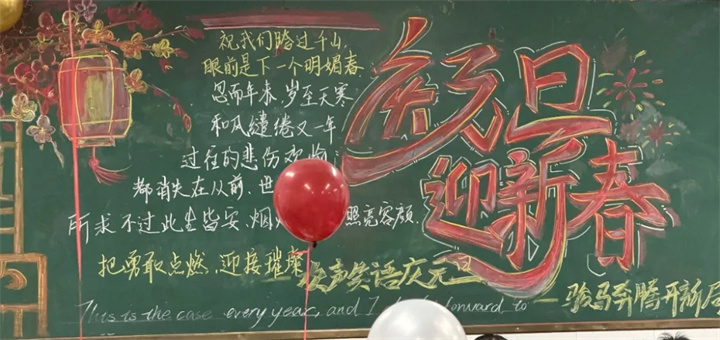 祝我们踏过千山,
眼前是下一个明媚春
忽而年末,岁至天寒
和风缱绻又一年
过往的悲伤欢愉
都消失在从前,世
所求不过此生皆安,烟 照亮容颜.
把勇敢点燃,迎接璀璨
庆元旦
迎新春
声笑语庆元旦
骏马奔腾开新
This is the case every year, and I forward to